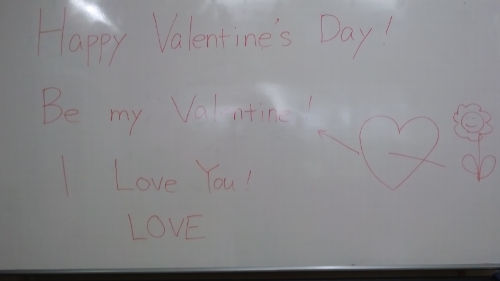 Happy Valentine's Day!
Be my Valentine!
I Love You!
LOVE